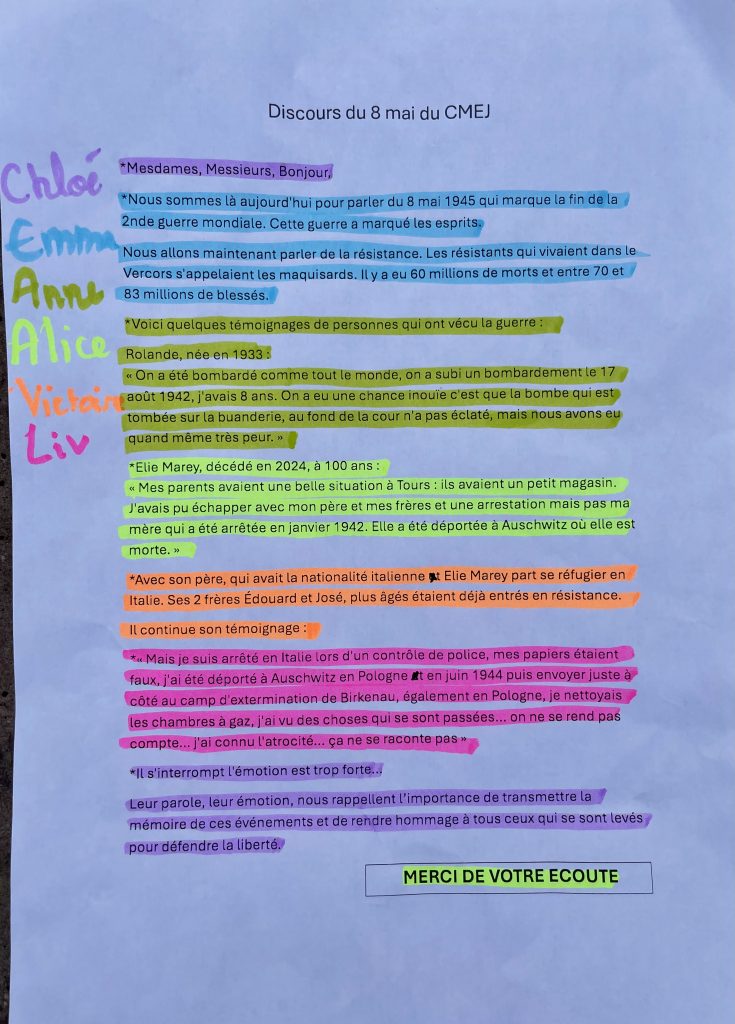 Discours du 8 mai du CMEJ
Chloé
*Mesdames, Messieurs, Bonjour,
*Nous sommes là aujourd'hui pour parler du 8 mai 1945 qui marque la fin de la
2nde guerre mondiale. Cette guerre a marqué les esprits.
Emma
Nous allons maintenant parler de la résistance. Les résistants qui vivaient dans le
Vercors s'appelaient les maquisards. Il y a eu 60 millions de morts et entre 70 et
83 millions de blessés.
Anne
*Voici quelques témoignages de personnes qui ont vécu la guerre :
Alice
Rolande, née en 1933 :
« On a été bombardé comme tout le monde, on a subi un bombardement le 17
Victoire
août 1942, j'avais 8 ans. On a eu une chance inouïe c'est que la bombe qui est
tombée sur la buanderie, au fond de la cour n'a pas éclaté, mais nous avons eu
Liv
quand même très peur. »
*Elie Marey, décédé en 2024, à 100 ans :
« Mes parents avaient une belle situation à Tours : ils avaient un petit magasin.
J'avais pu échapper avec mon père et mes frères et une arrestation mais pas ma
mère qui a été arrêtée en janvier 1942. Elle a été déportée à Auschwitz où elle est
morte. »
*Avec son père, qui avait la nationalité italienne Elie Marey part se réfugier en
Italie. Ses 2 frères Édouard et José, plus âgés étaient déjà entrés en résistance.
Il continue son témoignage :
*« Mais je suis arrêté en Italie lors d'un contrôle de police, mes papiers étaient
faux, j'ai été déporté à Auschwitz en Pologne en juin 1944 puis envoyer juste à
côté au camp d'extermination de Birkenau, également en Pologne, je nettoyais
les chambres à gaz, j'ai vu des choses qui se sont passées... on ne se rend pas
compte... j'ai connu l'atrocité... ça ne se raconte pas »
*Il s'interrompt l'émotion est trop forte...
Leur parole, leur émotion, nous rappellent l'importance de transmettre la
mémoire de ces événements et de rendre hommage à tous ceux qui se sont levés
pour défendre la liberté.
MERCI DE VOTRE ECOUTE